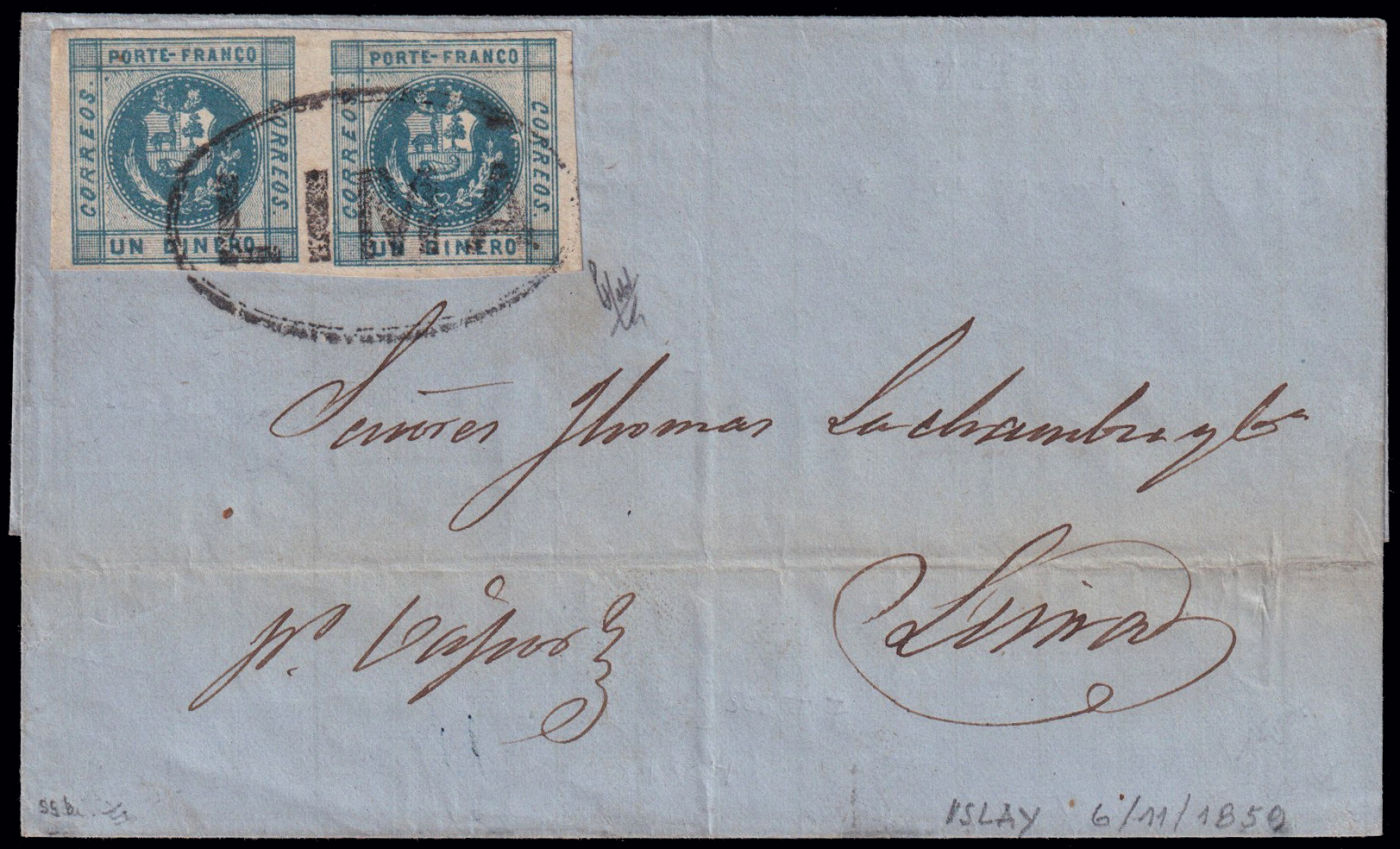 PORTE-FRANCO PORTE-FRANCO
CORREOS. CORREOS. CORREOS. CORREOS.
UN DINERO UN DINERO
LIMA
Señores Thomas Lachambre y Ca
Lima
pr. Vapor
ISLAY 6/11/1859